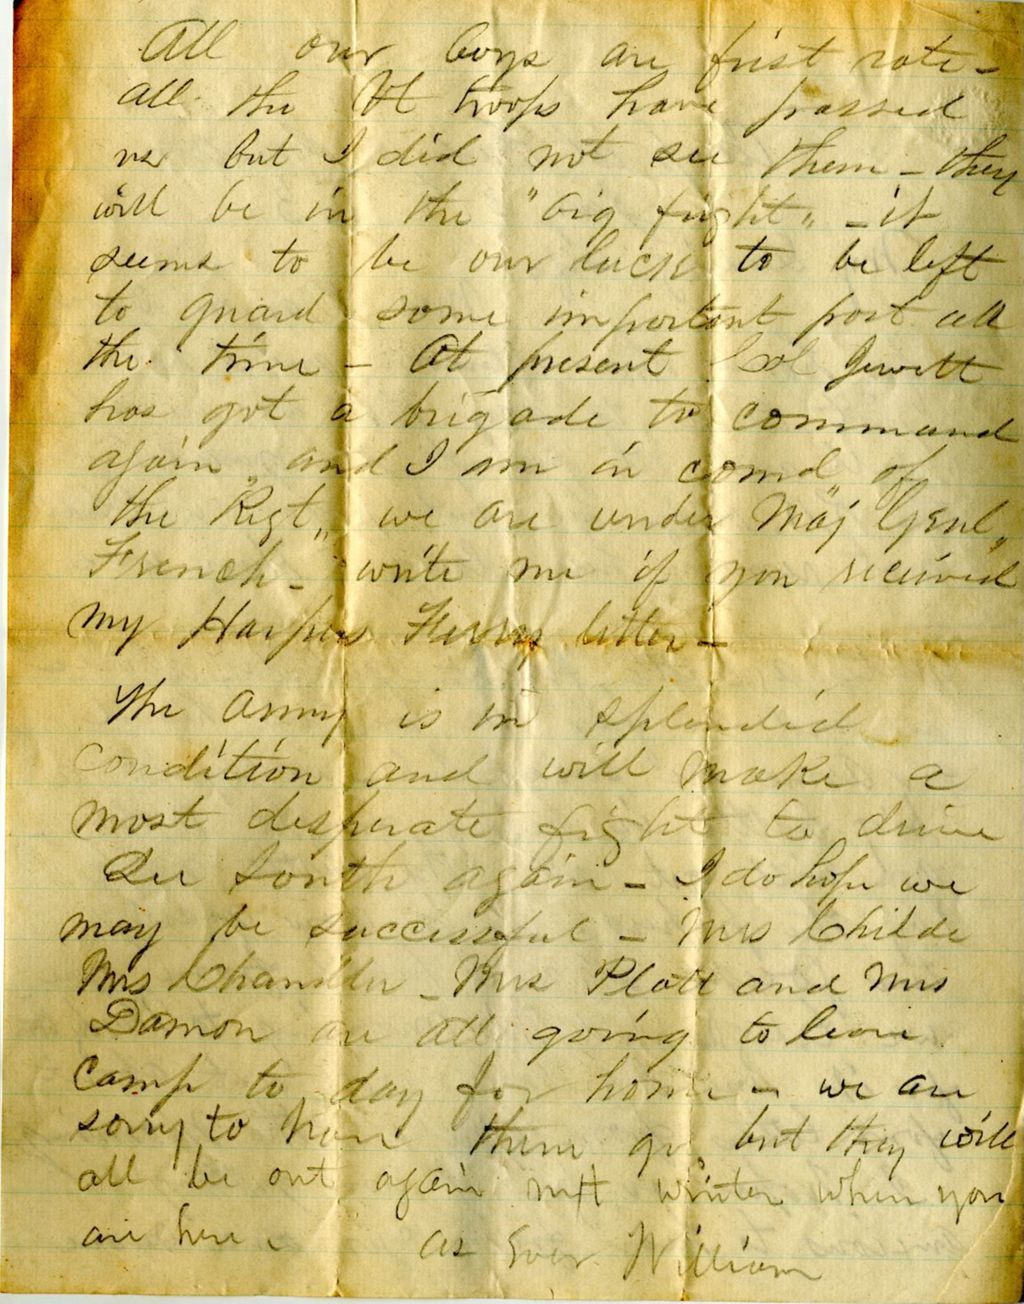 All our boys are first rate -
all the Vt troops have passed
us but I did not see them - they
will be in the "big fight" - it
seems to be our luck to be left
to guard some important post all
the time - At present Col Jewett
has got a brigade to command
again and I am in comd of
the "Regt" we are under Maj Genl
French - write me if you received
my Harpers Ferry letter -
The army is in splendid
condition and will make a
most desperate fight to drive
Lee South again - I do hope we
may be successful - Mrs Childe
Mrs Chandler - Mrs Platt and Mrs
Damon are all going to leave
camp to day for home - we are
sorry to have them go but they will
all be out again next winter when you
are here - As Ever William